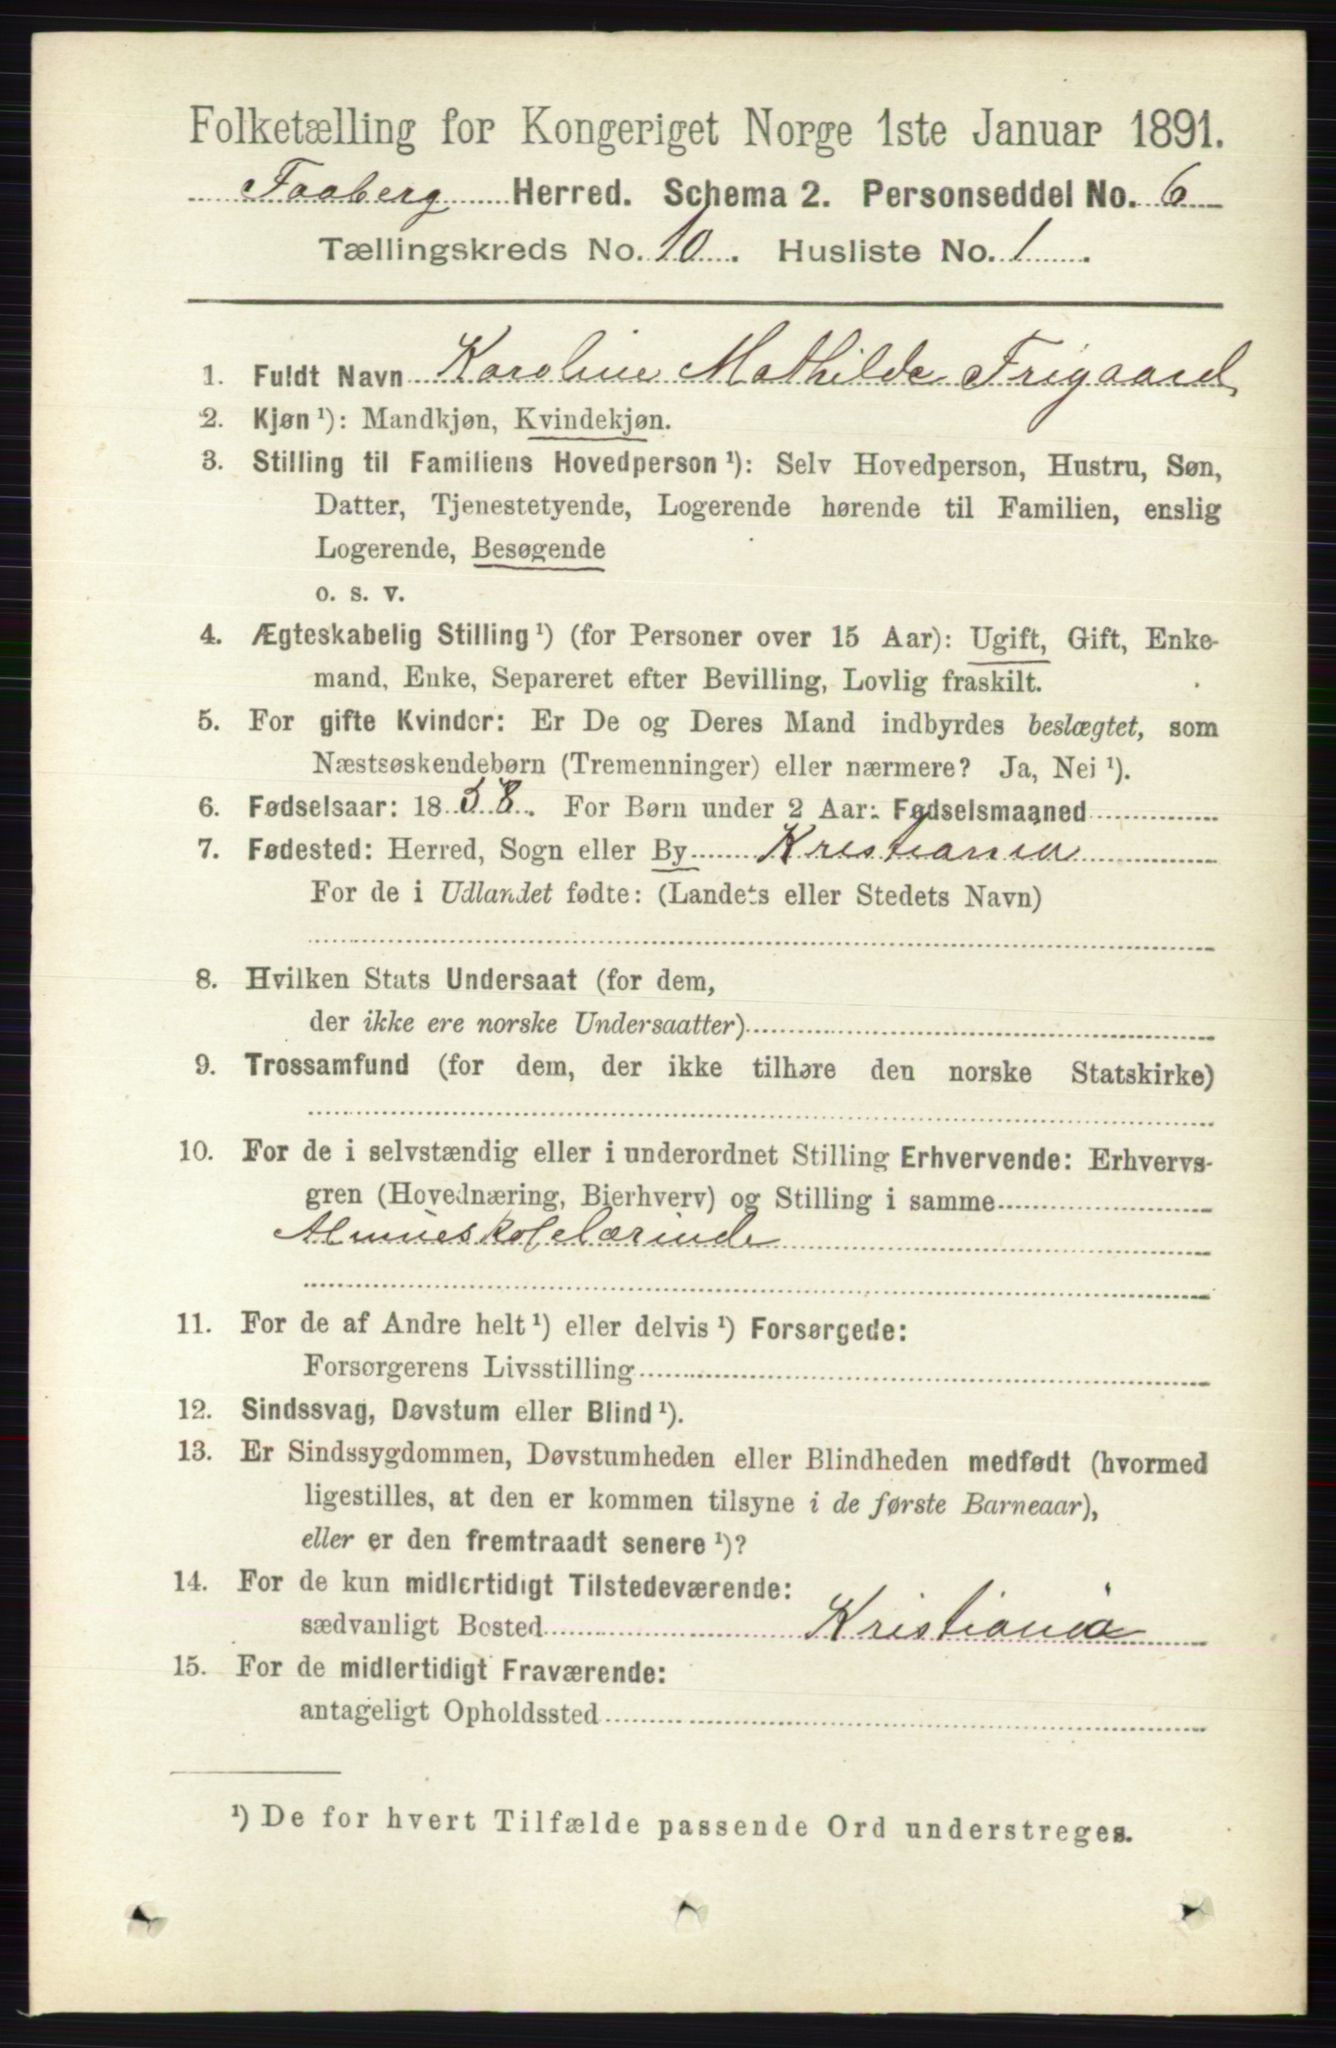 Folketælling for Kongeriget Norge 1ste Januar 1891.
Faaberg Herred. Schema 2. Personseddel No. 6
Tællingskreds No. 10. Husliste No. 1.
1. Fuldt Navn Karoline Mathilde Frigaard
2. Kjøn ¹): Mandkjøn, Kvindekjøn.
3. Stilling til Familiens Hovedperson ¹): Selv Hovedperson, Hustru, Søn,
Datter, Tjenestetyende, Logerende hørende til Familien, enslig
Logerende, Besøgende
o. s. v.
4. Ægteskabelig Stilling ¹) (for Personer over 15 Aar): Ugift, Gift, Enke-
mand, Enke, Separeret efter Bevilling, Lovlig fraskilt.
5. For gifte Kvinder: Er De og Deres Mand indbyrdes beslægtet, som
Næstsøskendebørn (Tremenninger) eller nærmere? Ja, Nei ¹).
6. Fødselsaar: 1858. For Børn under 2 Aar: Fødselsmaaned
7. Fødested: Herred, Sogn eller By Kristiania
For de i Udlandet fødte: (Landets eller Stedets Navn)
8. Hvilken Stats Undersaat (for dem,
der ikke ere norske Undersaatter)
9. Trossamfund (for dem, der ikke tilhøre den norske Statskirke)
10. For de i selvstændig eller i underordnet Stilling Erhvervende: Erhvervs-
gren (Hovednæring, Bierhverv) og Stilling i samme
Almueskolelærinde
11. For de af Andre helt ¹) eller delvis ¹) Forsørgede:
Forsørgerens Livsstilling
12. Sindssvag, Døvstum eller Blind ¹).
13. Er Sindssygdommen, Døvstumheden eller Blindheden medfødt (hvormed
ligestilles, at den er kommen tilsyne i de første Barneaar),
eller er den fremtraadt senere ¹)?
14. For de kun midlertidigt Tilstedeværende:
sædvanligt Bosted Kristiania
15. For de midlertidigt Fraværende:
antageligt Opholdssted
¹) De for hvert Tilfælde passende Ord understreges.